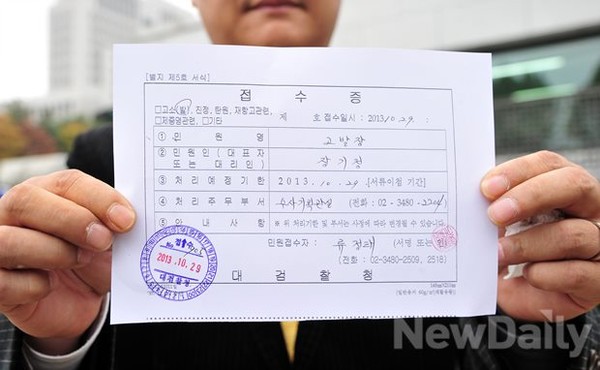 [별지 제5호 서식]
접 수 증
□고소(발), 진정, 탄원, 재항고관련, 제 호 접수일시 : 2013. 10. 29.
□제증명관련, □기타
① 민 원 명 고발장
② 민 원 인 ( 대 표 자 또 는 대 리 인 ) 장기정
③ 처 리 예 정 기 한 2013. 10. 29 [서류이첩 기간]
④ 처 리 주 무 부 서 (전화 : 02 - 3480 - 2204)
⑤ 안 내 사 항 ※ 위 처리기한 및 부서는 사정에 따라 변경될 수 있습니다.
민원접수자 : 류 (서명 또는 인)
(전화 : 02-3480-2509, 2518)
대 검 찰 청
접수
No.
2013. 10. 29
대검찰청
NewDaily